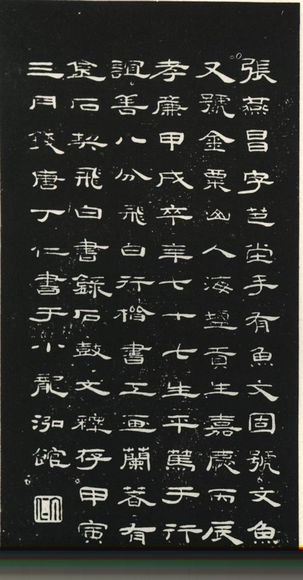 張燕昌字芑堂手有魚文因號文魚
又號金粟山人海鹽貢生嘉慶丙辰
孝廉甲戌卒年七十七生平篤于行
誼善八分飛白行楷書工畫蘭著有
金石契飛白書錄石鼓文釋存甲寅
三月錢唐丁仁書于小龍泓館